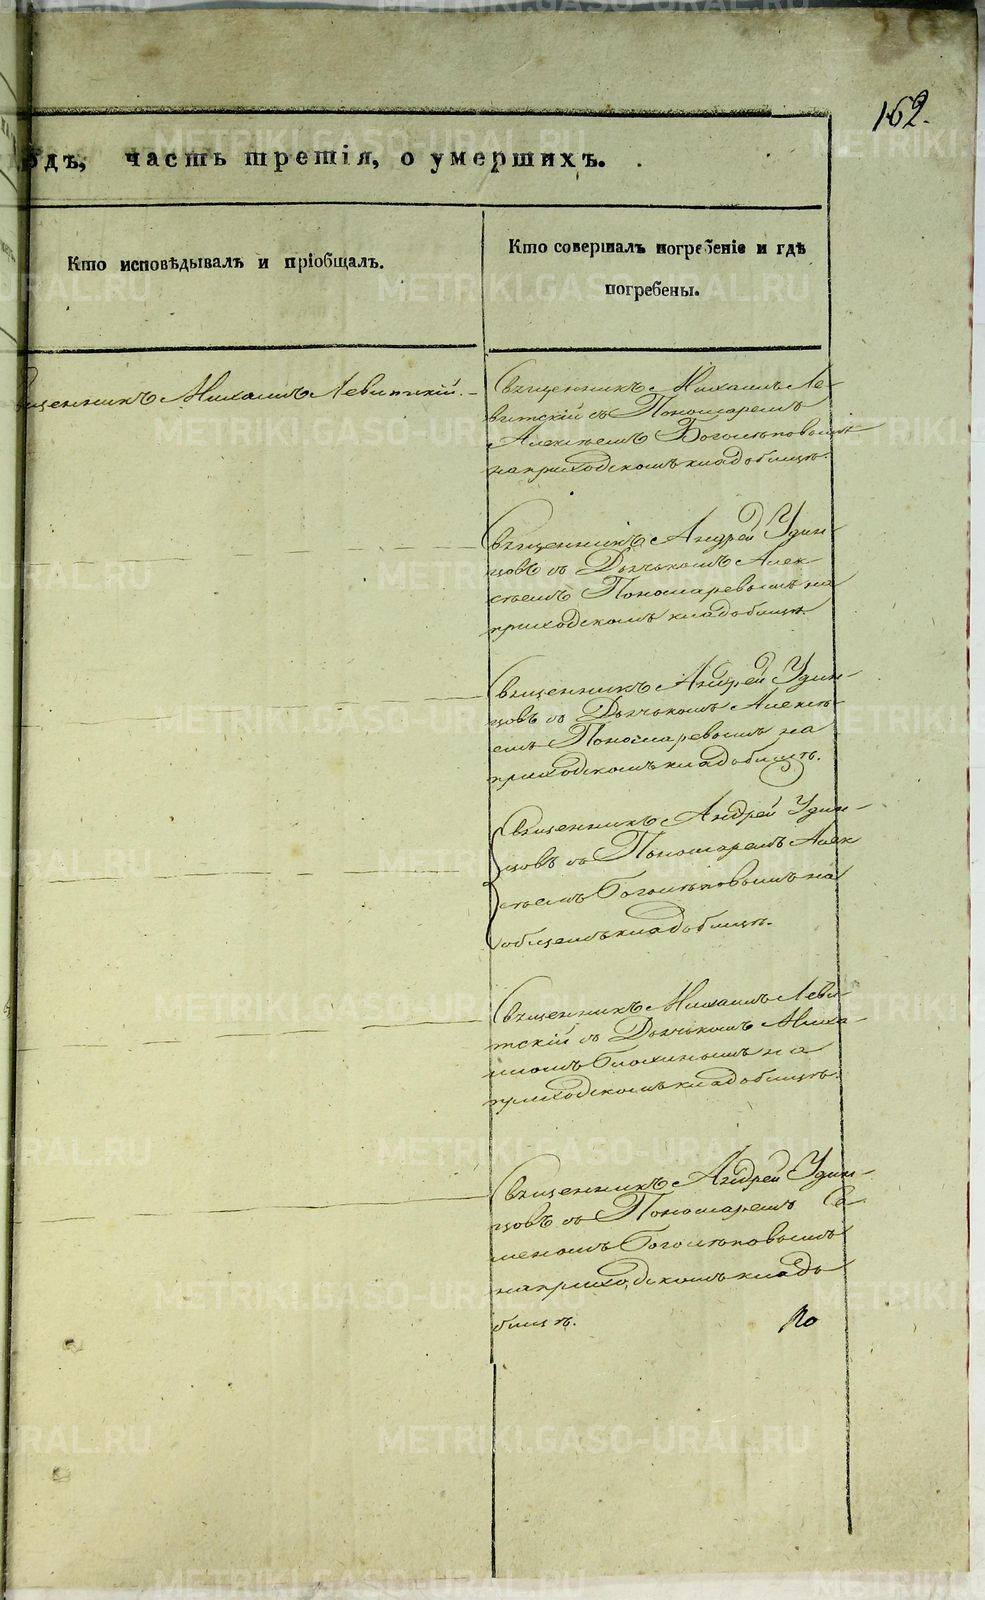 162.
одъ, часть третія, о умершихъ.
Кто исповѣдывалъ и пріобщалъ.
Кто совершалъ погребеніе и гдѣ
погребены.
щенникъ Михаилъ Левитскій. –
Священникъ Михаилъ Ле-
витскій съ Пономаремъ
Алексѣемъ Боголѣповымъ
на приходскомъ кладбищѣ.
Священникъ Андрей Удин-
цовъ съ Дьячькомъ Алек-
сѣемъ Пономаревымъ на
приходскомъ кладбищѣ.
Священникъ Андрей Удин-
цовъ съ Дьячькомъ Алексѣ-
емъ Пономаревымъ на
приходскомъ кладбищѣ.
Священникъ Андрей Удин-
цовъ съ Пономаремъ Алек
сѣемъ Боголѣповымъ на
общемъ кладбищѣ.
Священникъ Михаилъ Леви-
тскій съ Дьячькомъ Миха-
иломъ Блохинымъ на
приходскомъ кладбищѣ.
Священникъ Андрей Удин-
цовъ съ Пономаремъ Се
меномъ Боголѣповымъ
на приходскомъ кладъ
бищѣ.
METRIKI.GASO-URAL.RU